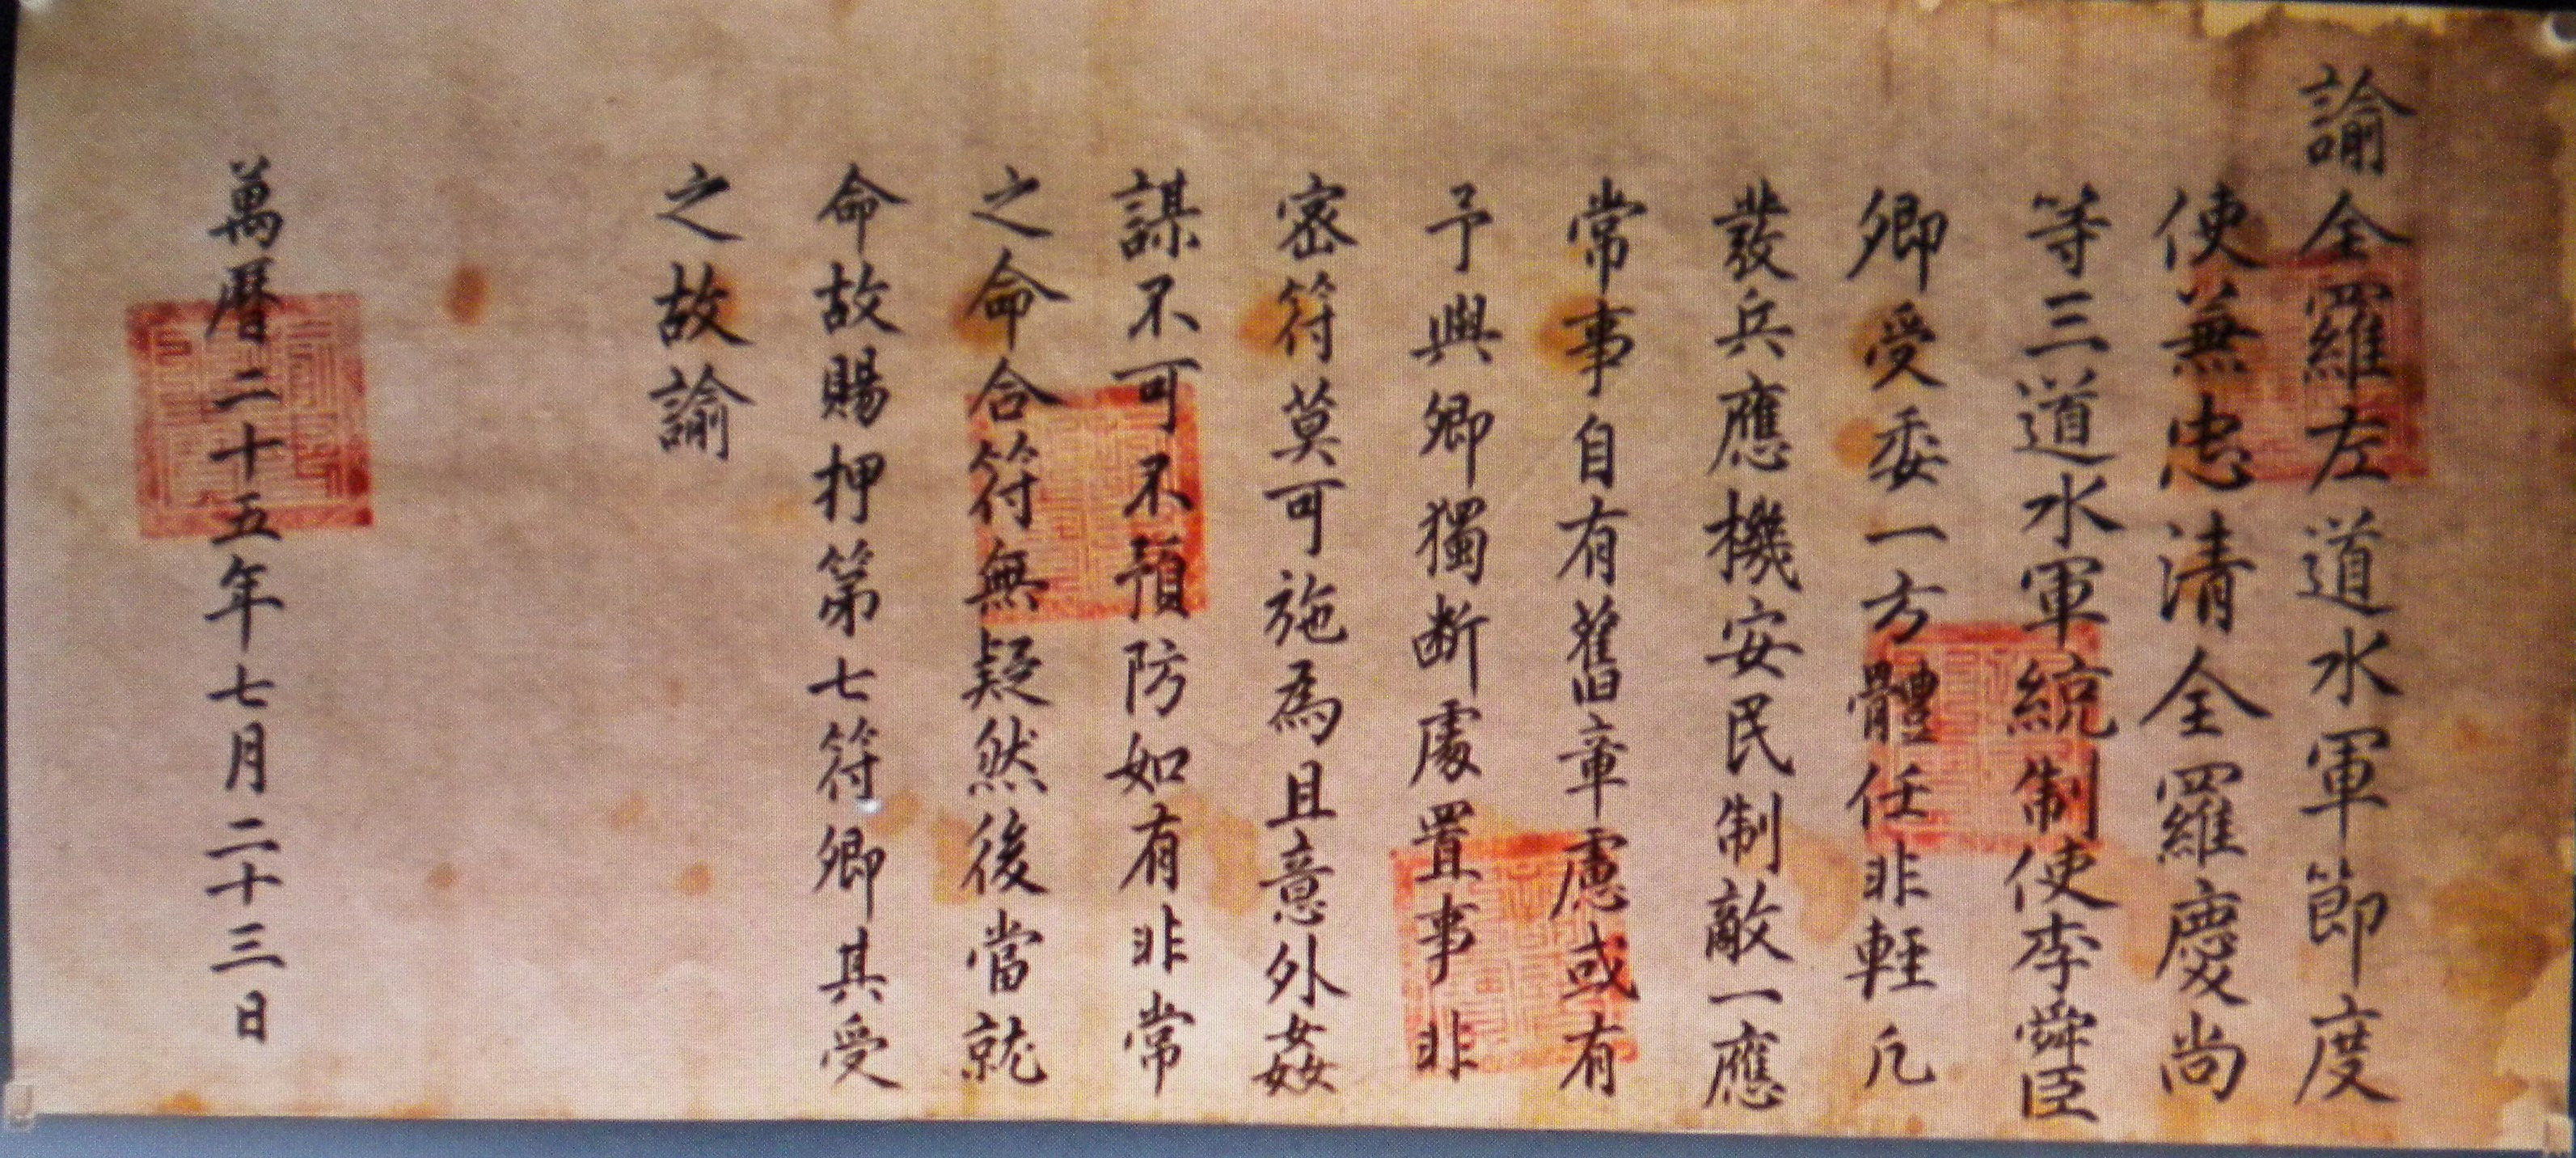 諭全羅左道水軍節度
使兼忠清全羅慶尚
等三道水軍統制使李舜臣
卿受委一方體任非輕凡
發兵應機安民制敵一應
常事自有舊章慮或有
予與卿獨断處置事非
密符莫可施為且意外姦
謀不可不預防如有非常
之命合符無疑然後當就
命故賜押第七符卿其受
之故諭
萬曆二十五年七月二十三日